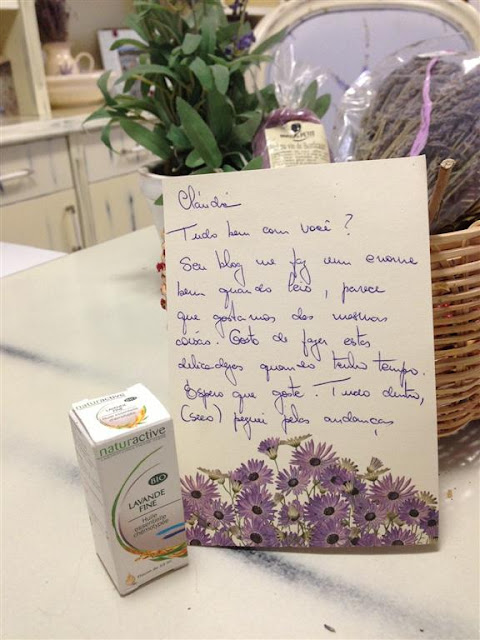 Cláudia
Tudo bem com você?
Seu blog me faz um enorme
bem quando leio, parece
que gostamos das mesmas
coisas. Gosto de fazer estas
delicadezas quando tenho tempo.
Espero que goste. Tudo dentro,
(seco) peguei pelas andanças
naturactive
LAVANDE
FINE
naturactive
BIO
LAVANDE
FINE
Huile
essentielle
chémotypée